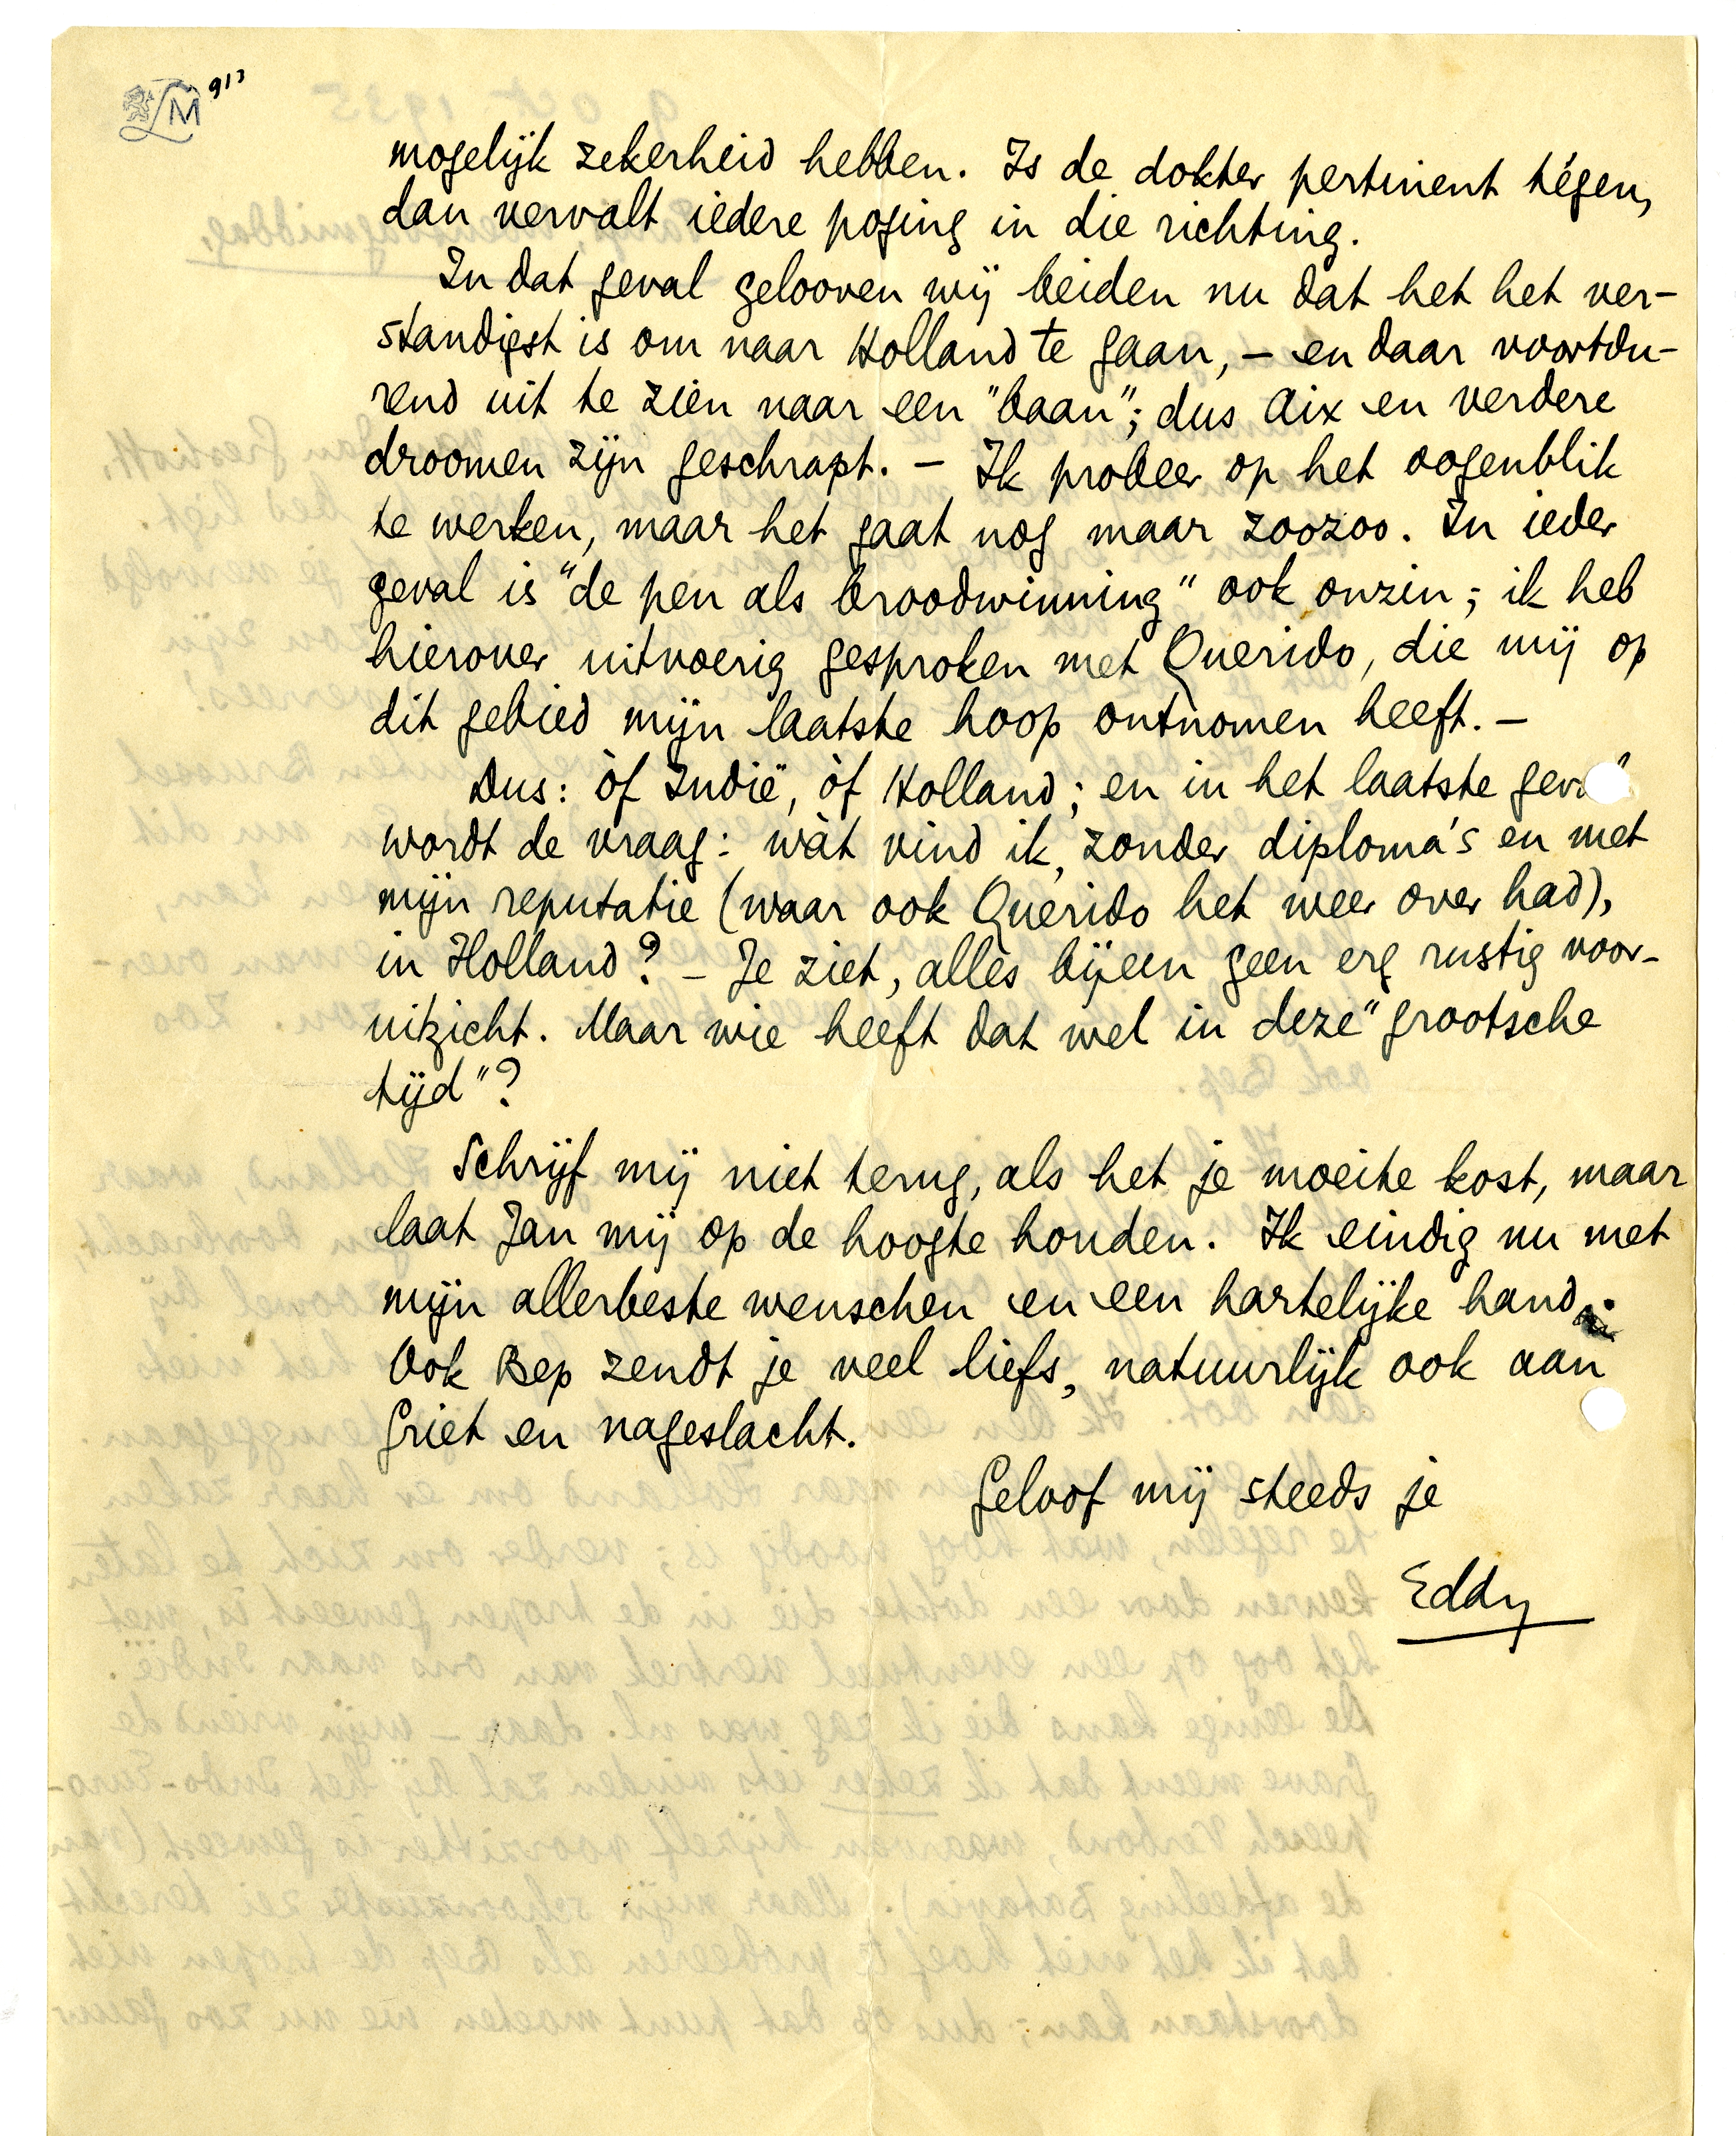 LM 913
mogelijk zekerheid hebben. Is de dokter pertinent tégen,
dan vervalt iedere poging in die richting.
In dat geval gelooven wij beiden nu dat het het ver-
standigst is om naar Holland te gaan, – en daar voortdu-
rend uit te zien naar een "baan"; dus Aix en verdere
droomen zijn geschrapt. – Ik probeer op het oogenblik
te werken, maar het gaat nog maar zoozoo. In ieder
geval is "de pen als broodwinning" ook onzin; ik heb
hierover uitvoerig gesproken met Querido, die mij op
dit gebied mijn laatste hoop ontnomen heeft. –
Dus: òf Indië, òf Holland; en in het laatste geval
wordt de vraag: wàt vind ik, zonder diploma's en met
mijn reputatie (waar ook Querido het weer over had),
in Holland? – Je ziet, alles bijeen geen erg rustig voor-
uitzicht. Maar wie heeft dat wel in deze "grootsche
tijd"?
Schrijf mij niet terug, als het je moeite kost, maar
laat Jan mij op de hoogte houden. Ik eindig nu met
mijn allerbeste wenschen en een hartelijke hand.
Ook Bep zendt je veel liefs, natuurlijk ook aan
Griet en nageslacht.
Geloof mij steeds je
Eddy